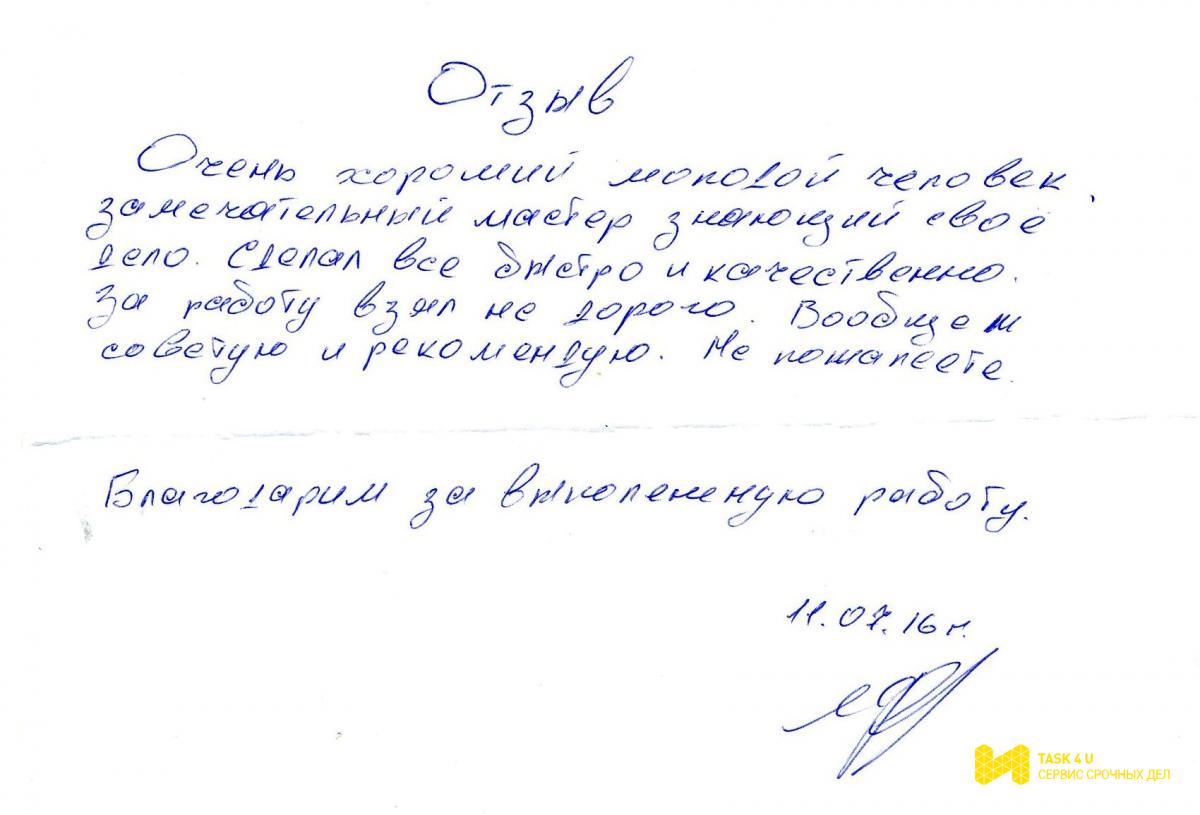 Отзыв
Очень хороший молодой человек,
замечательный мастер знающий своё
дело. Сделал все быстро и качественно.
За работу взял не дорого. Вообщем
советую и рекомендую. Не пожалеете.
Благодарим за выполененую работу.
11.07.16 г.
TASK 4 U
СЕРВИС СРОЧНЫХ ДЕЛ